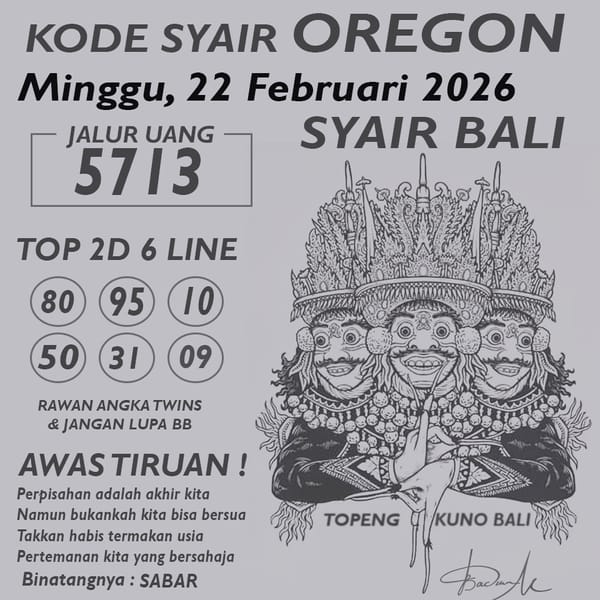 KODE SYAIR OREGON
Minggu, 22 Februari 2026
JALUR UANG
5713
SYAIR BALI
TOP 2D 6 LINE
80 95 10
50 31 09
RAWAN ANGKA TWINS
& JANGAN LUPA BB
AWAS TIRUAN !
Perpisahan adalah akhir kita
Namun bukankah kita bisa bersua
Takkan habis termakan usia
Pertemanan kita yang bersahaja
Binatangnya : SABAR
TOPENG KUNO BALI